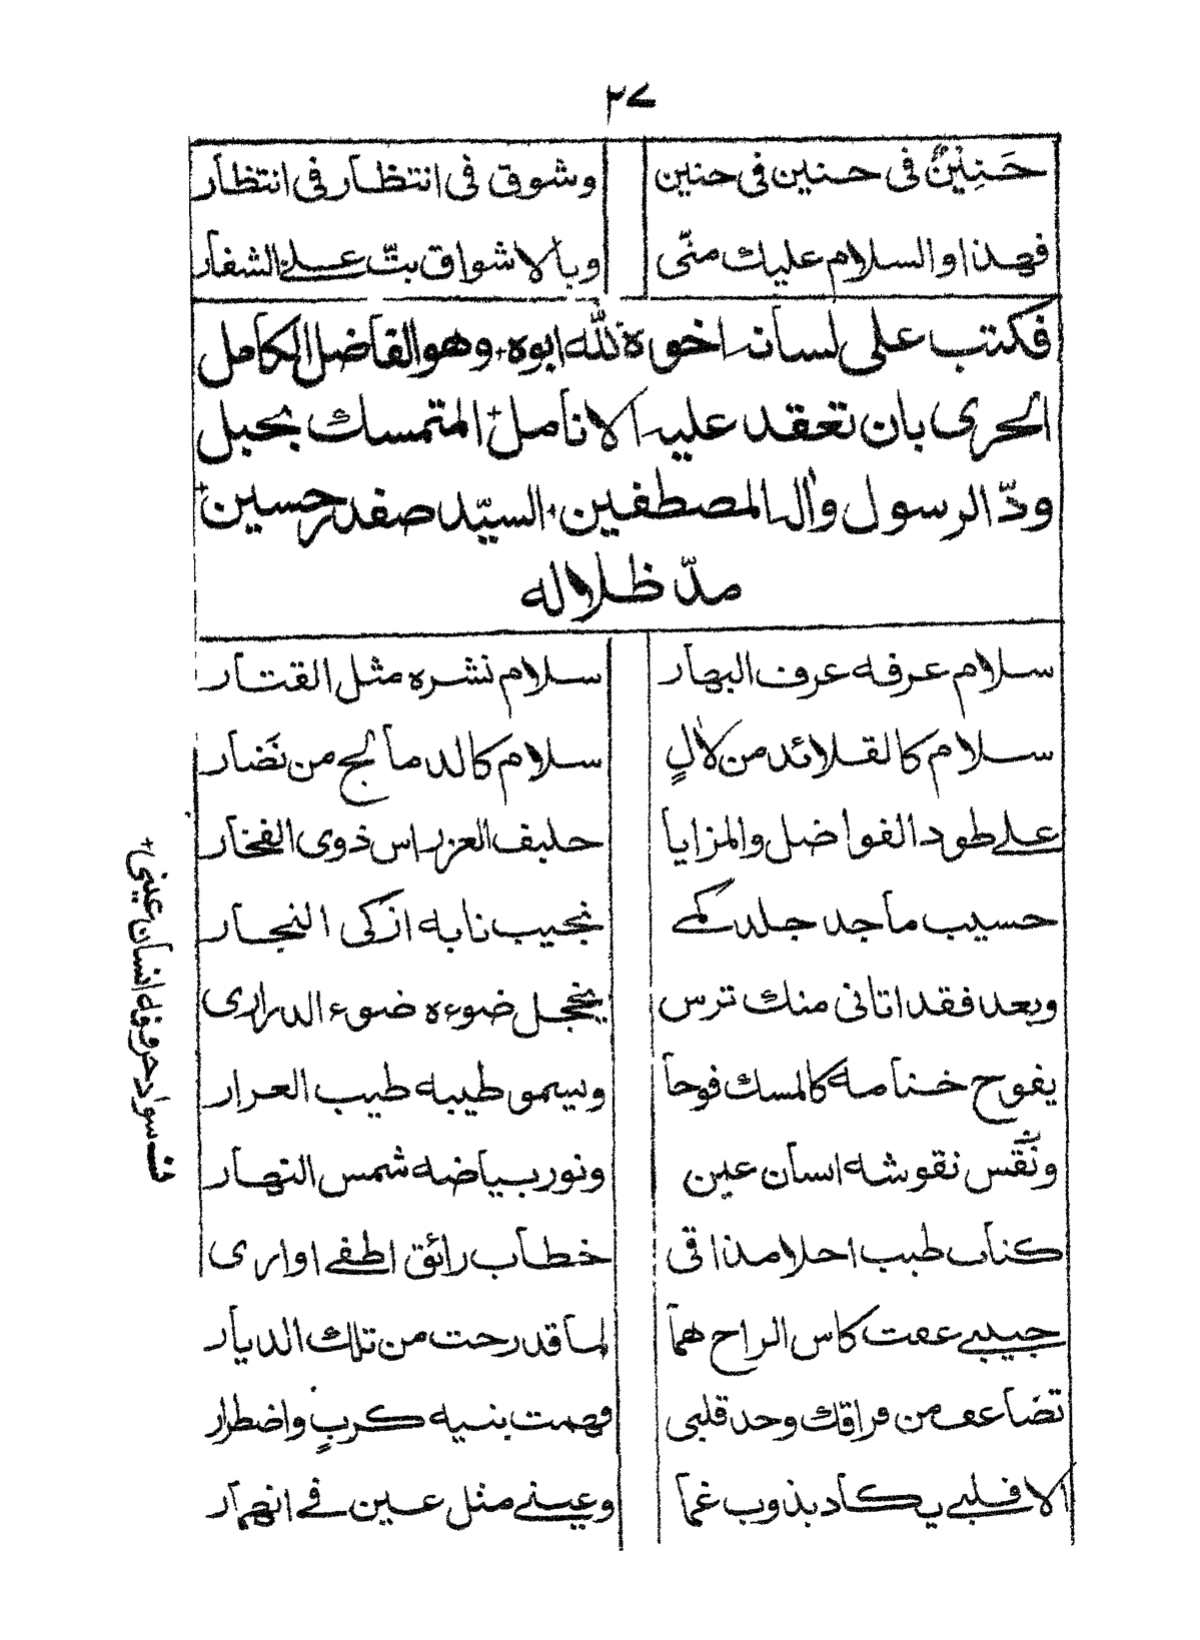 ٢٧
حَنِيْنٌ فى حنين فى حنين وشوق فى انتظار فى انتظار
فهذا والسلام عليك منّى وبالاشواق بتّ على الشفار
فكتب على لسانه اخوه لله ابوه + وهو الفاضل الكامل
الحرى بان تعقد عليه الانامل + المتمسك بحبل
ودّ الرسول واٰله المصطفين + السيّد صفدر حسين +
مدّ ظلاله
سلام عرفه عرف البهار سلام نشره مثل القتار
سلام كالقلائد من لاٰلٍ سلام كالدمالج من نَضار
على طود الفواضل والمزايا حليف العز راس ذوى الفخار
حسيب ماجد جلد كمے نجيب نابه ازكى النجار
وبعد فقد اتانى منك ترس يخجل ضوءه ضوء الدرارى
يفوح ختامه كالمسك فوحا ويسمو طيبه طيب العرار
ونَقْس نقوشه انسان عين ونور بياضه شمس النهار
كتاب طيب احلا مذاقى خطاب رائق اطفے اوارى
حبيبے عفت كاس الراح هما لما قد رحت من تلك الديار
تضاعف من فراقك وجد قلبى فهمت بتيه كربٍ واضطرار
الا قلبے يكاد يذوب غما وعينے مثل عين فے انهمار
سواد حروفه انسان عينى +